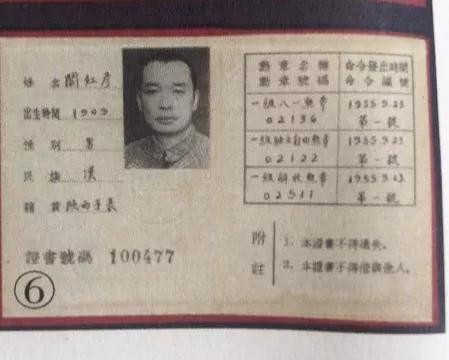 姓名 閻紅彦
出生時間 1909
性别 男
民族 漢
籍貫 陕西子長
證書號碼 100477
勳章名稱
勳章號碼
命令發出時間
命令編號
一级八一勲章
02136
1955.9.23
第一號
一级独立自由勲章
02122
1955.9.23
第一號
一级解放勲章
02511
1955.9.23
第一號
附註
1. 本證書不得遺失。
2. 本證書不得借與他人。
⑥